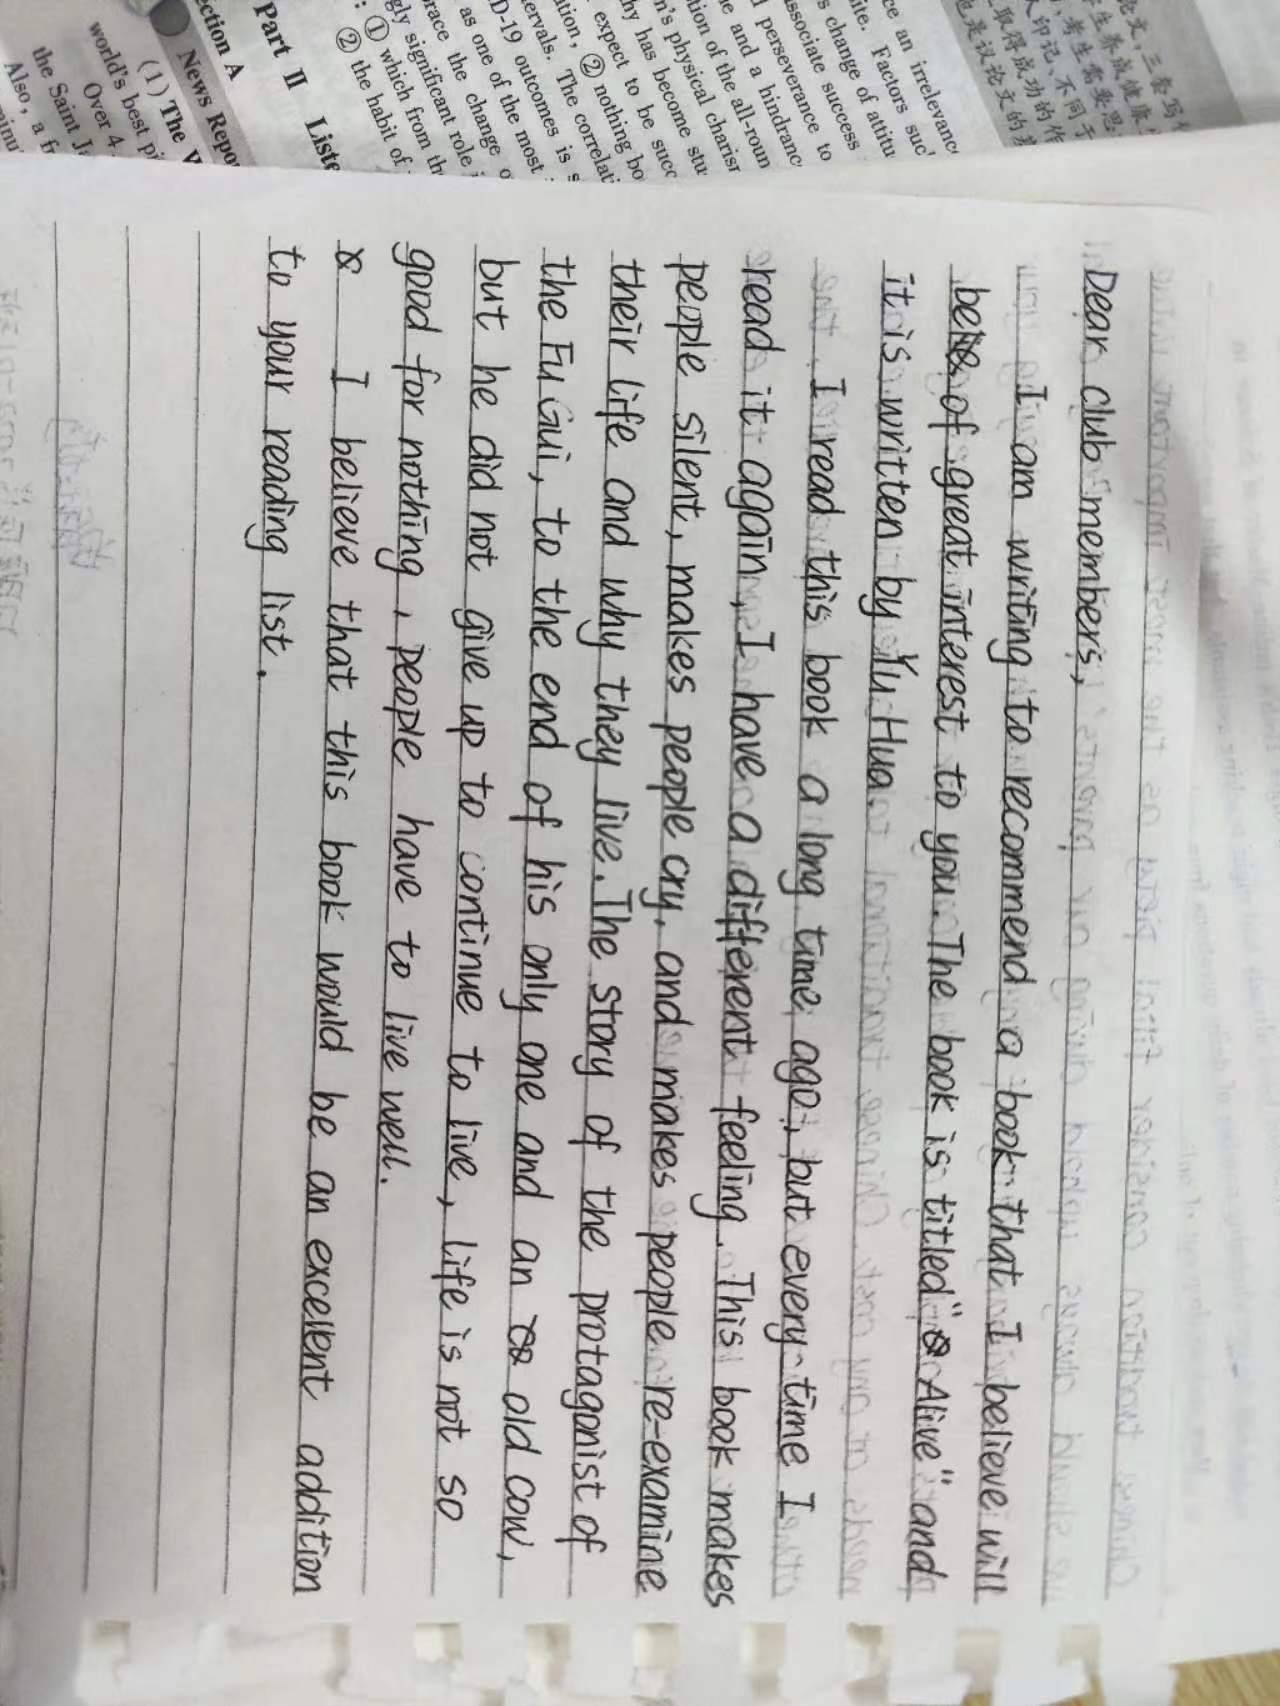 ection A
News Repo
(1) The
world's best pi
Over 4
the Saint J
Also, a f
Part II Liste
: ① which from th
② the habit of
gly significant role
race the change o
as one of the most
D-19 outcomes is s
ervals. The correlat
tion, ② nothing bo
expect to be succ
hy has become stu
n's physical charisn
tion of the all-roun
e and a hindranc
l perseverance to
associate success
s change of attitu
ite. Factors suc
ce an irrelevanc
论文,三要写
生养成健康
,考生需要思
人印记,不同于
取得成功的作
也是议论文的
Dear club members,
I am writing to recommend a book that I believe will
be of great interest to you. The book is titled "Alive" and
it is written by Yu Hua.
I read this book a long time ago, but every time I
read it again, I have a different feeling. This book makes
people silent, makes people cry, and makes people re-examine
their life and why they live. The story of the protagonist of
the Fu Gui, to the end of his only one and an old cow,
but he did not give up to continue to live, life is not so
good for nothing, people have to live well.
I believe that this book would be an excellent addition
to your reading list.